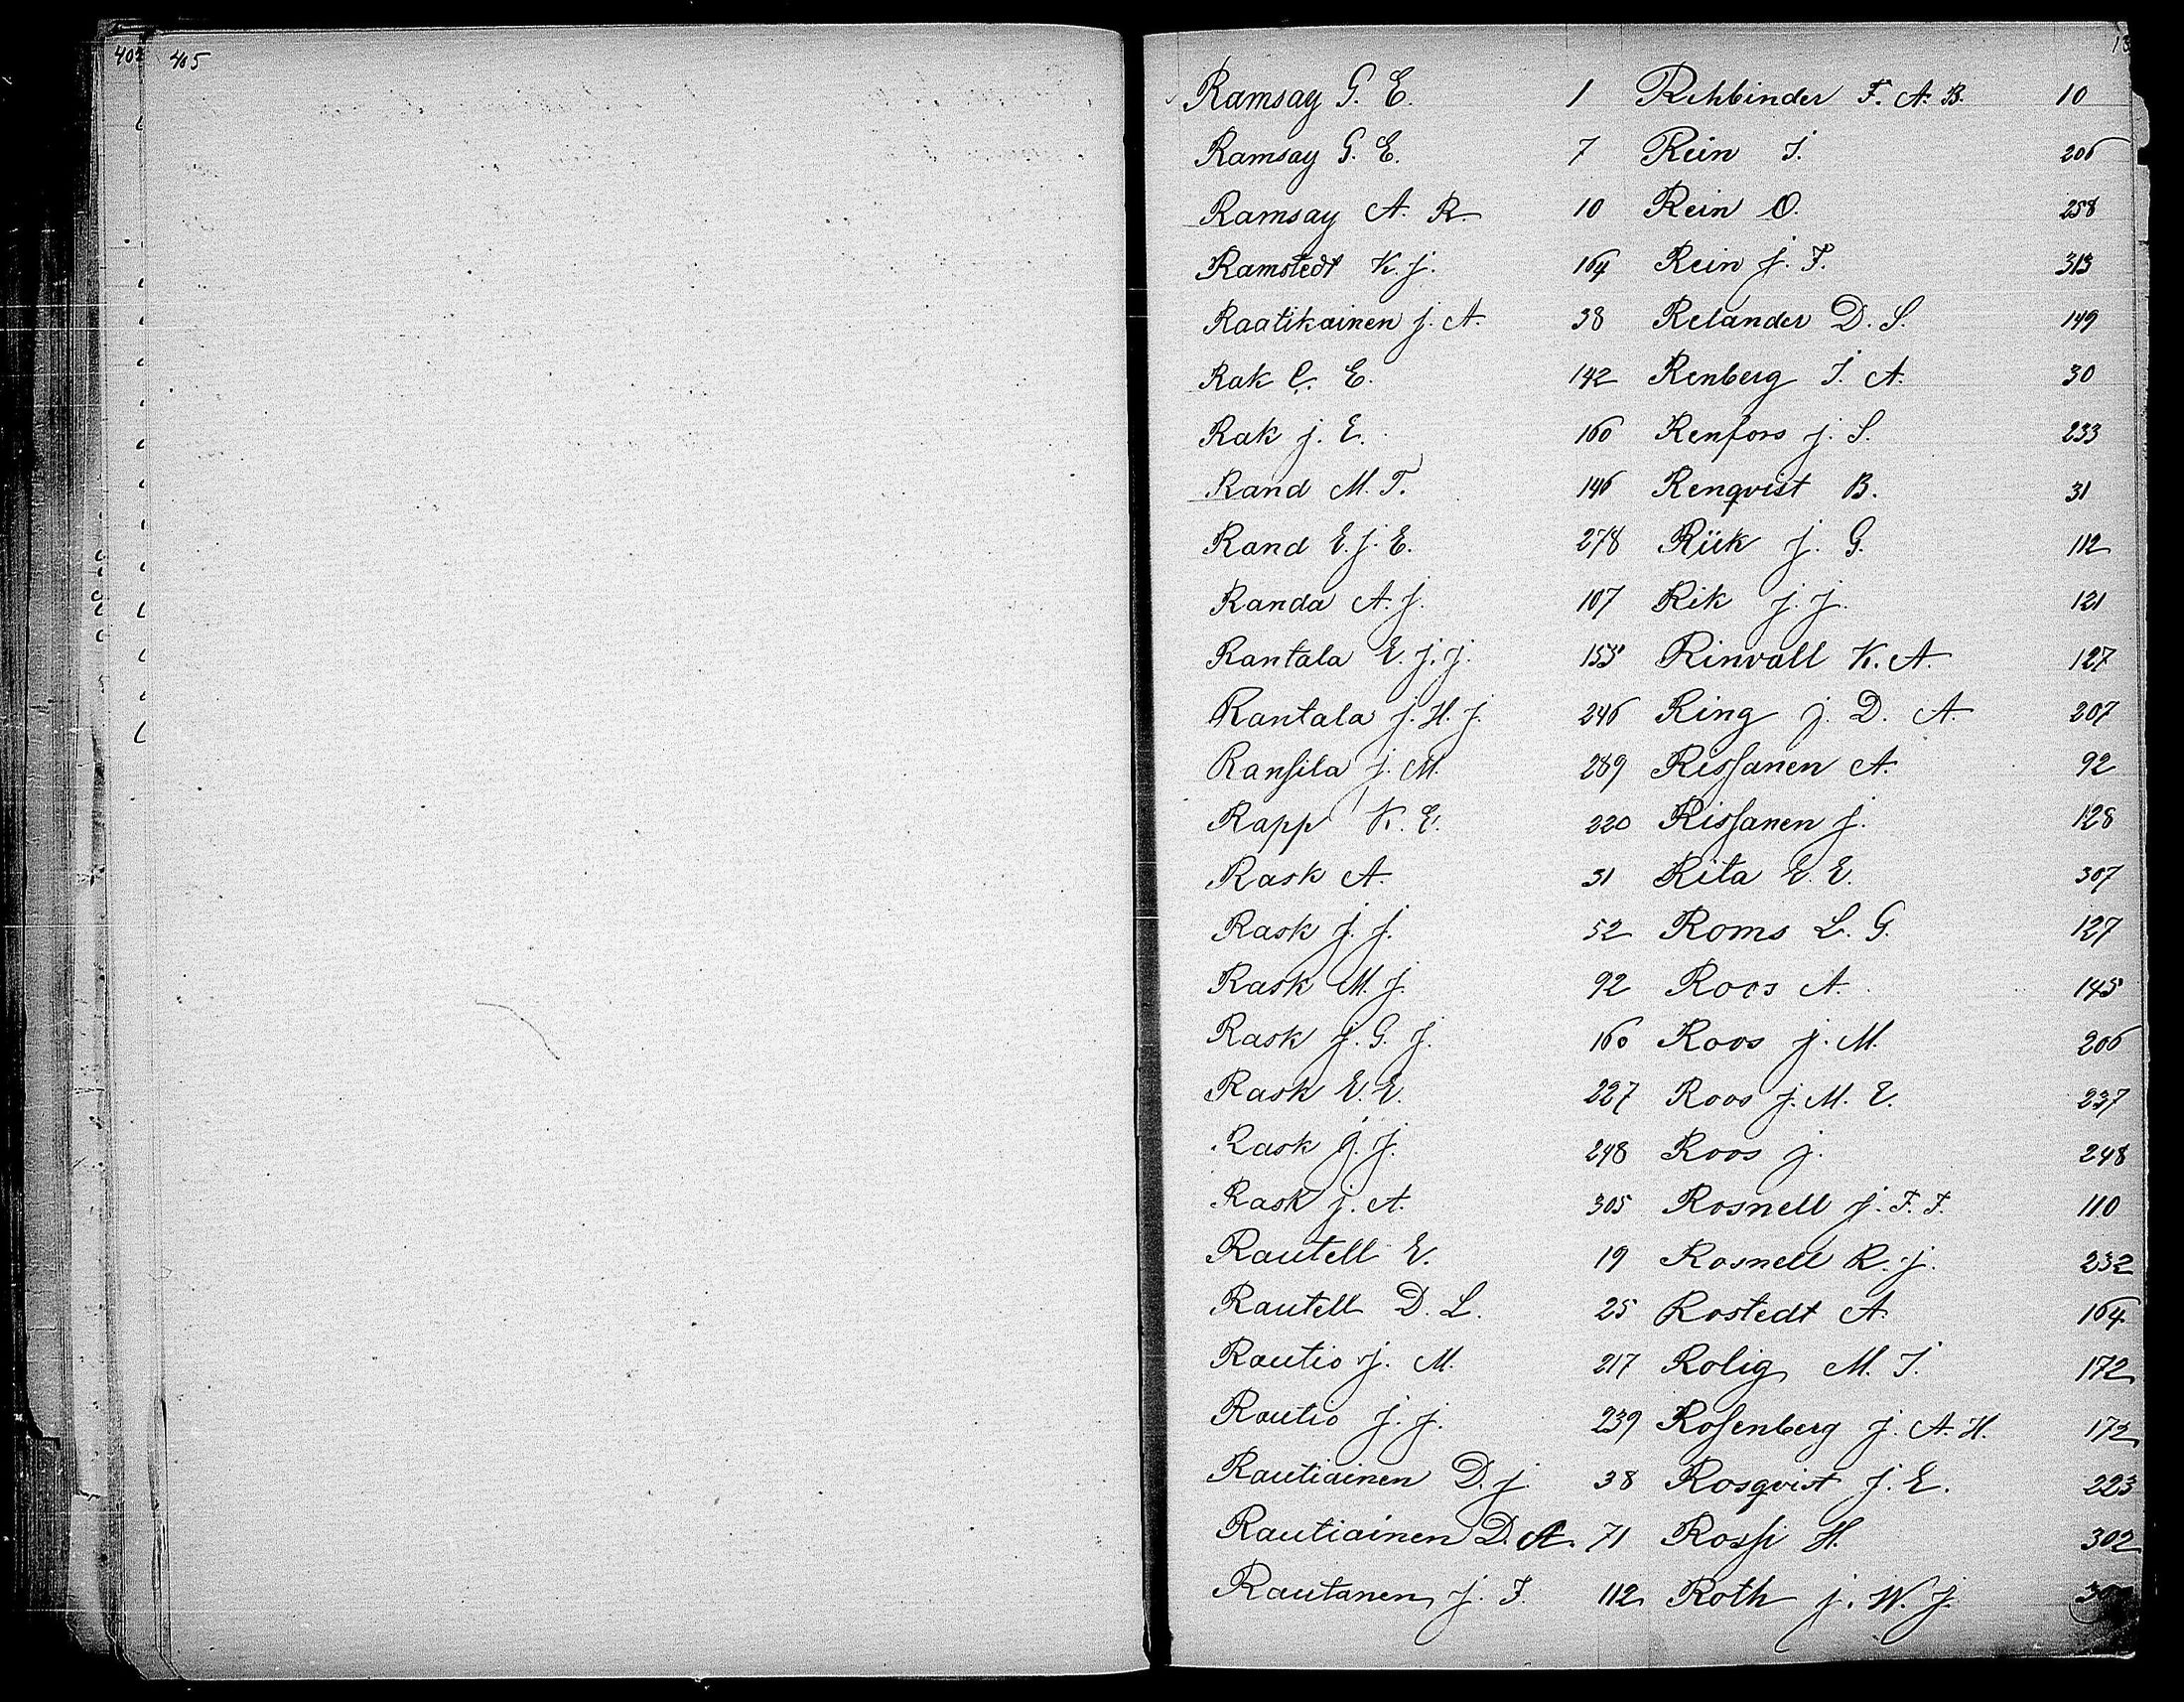 405
Ramsay G. E. 1
Ramsay G. E. 7
Ramsay A. R. 10
Ramstedt K. J. 164
Raatikainen J. A. 38
Rak C. E. 142
Rak J. E. 160
Rand M. T. 146
Rand E. J. E. 278
Randa A. J. 107
Rantala E. J. J. 155
Rantala J. H. J. 246
Ransila J. M. 289
Rapp K. E. 220
Rask A. 31
Rask J. J. 52
Rask M. J. 92
Rask J. G. J. 160
Rask E. E. 227
Rask G. J. 248
Rask J. A. 305
Rautell E. 19
Rautell D. L. 25
Rautio J. M. 217
Rautio J. J. 239
Rautiainen D. J. 38
Rautiainen D. A. 71
Rautanen J. F. 112
Rehbinder F. A. B. 10
Rein I. 206
Rein O. 258
Rein J. F. 313
Relander D. S. 149
Renberg I. A. 30
Renfors J. S. 233
Renqvist B. 31
Riik J. G. 112
Rik J. J. 121
Rinvall K. A. 127
Ring J. D. A. 207
Rissanen A. 92
Rissanen J. 128
Rita E. E. 307
Roms L. G. 127
Roos A. 145
Roos J. M. 206
Roos J. M. E. 237
Roos J. 248
Rosnell J. F. F. 110
Rosnell R. J. 232
Rostedt A. 164
Rolig M. I. 172
Rosenberg J. A. H. 172
Rosqvist J. E. 223
Rossi H. 302
Roth J. W. J.